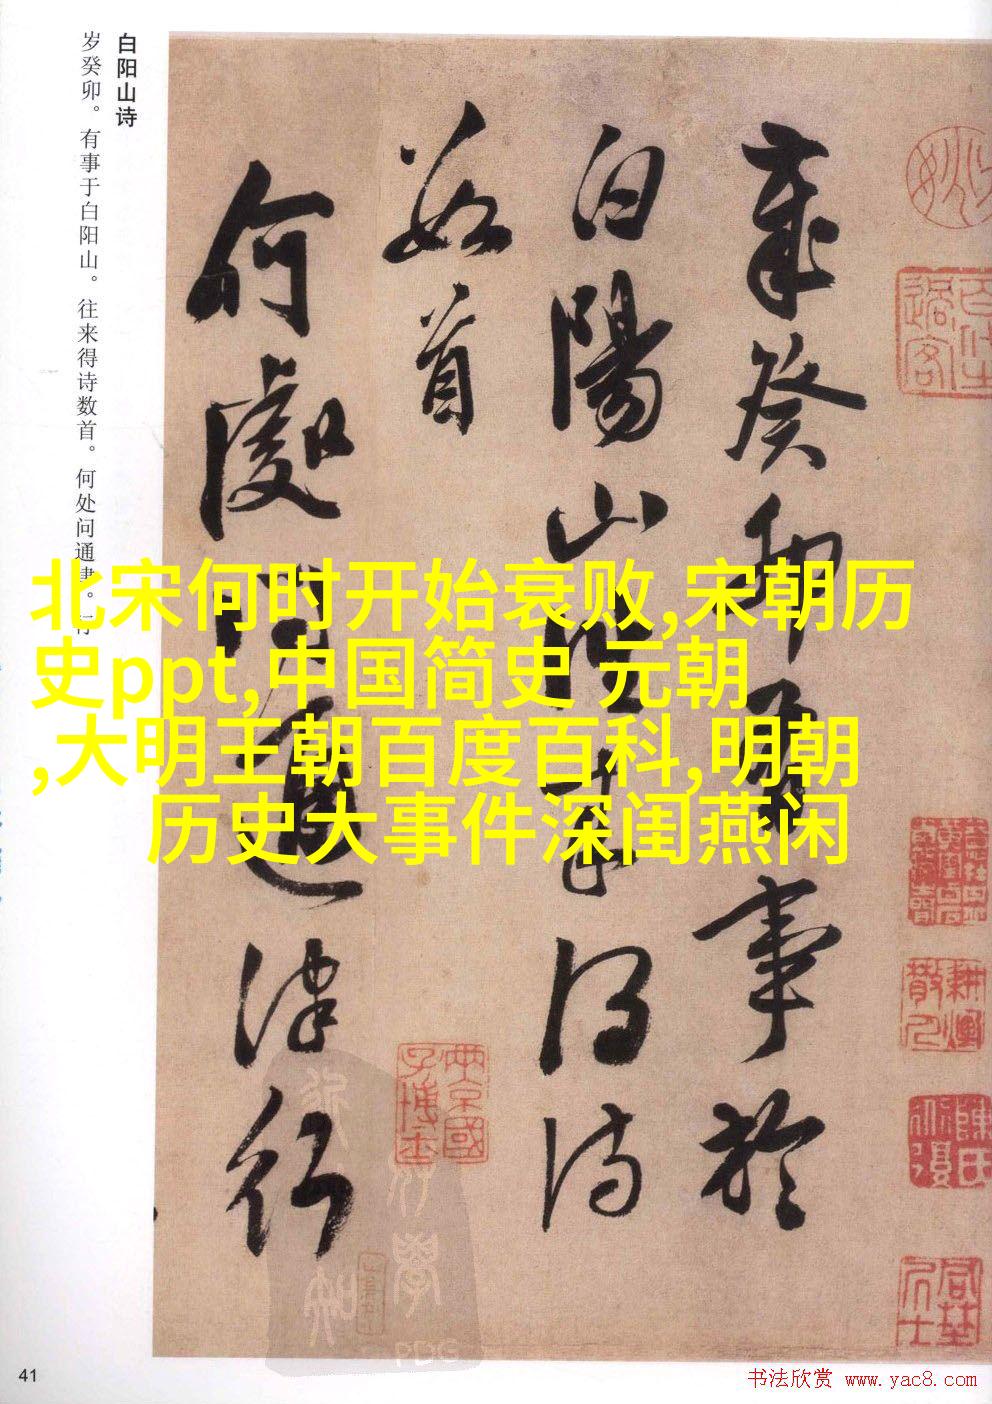 白阳山诗
岁癸卯。有事于白阳山。往来得诗数首。何处问通津。行
歲癸卯有事於
白陽山往来得詩
数首
何處問通津行
北宋何时开始衰败,宋朝历
史ppt,中国简史 元朝
,大明王朝百度百科,明朝
历史大事件深闺燕闲
耕烟
散人
南京國
子博士
41
书法欣赏 www.yac8.com
PDG